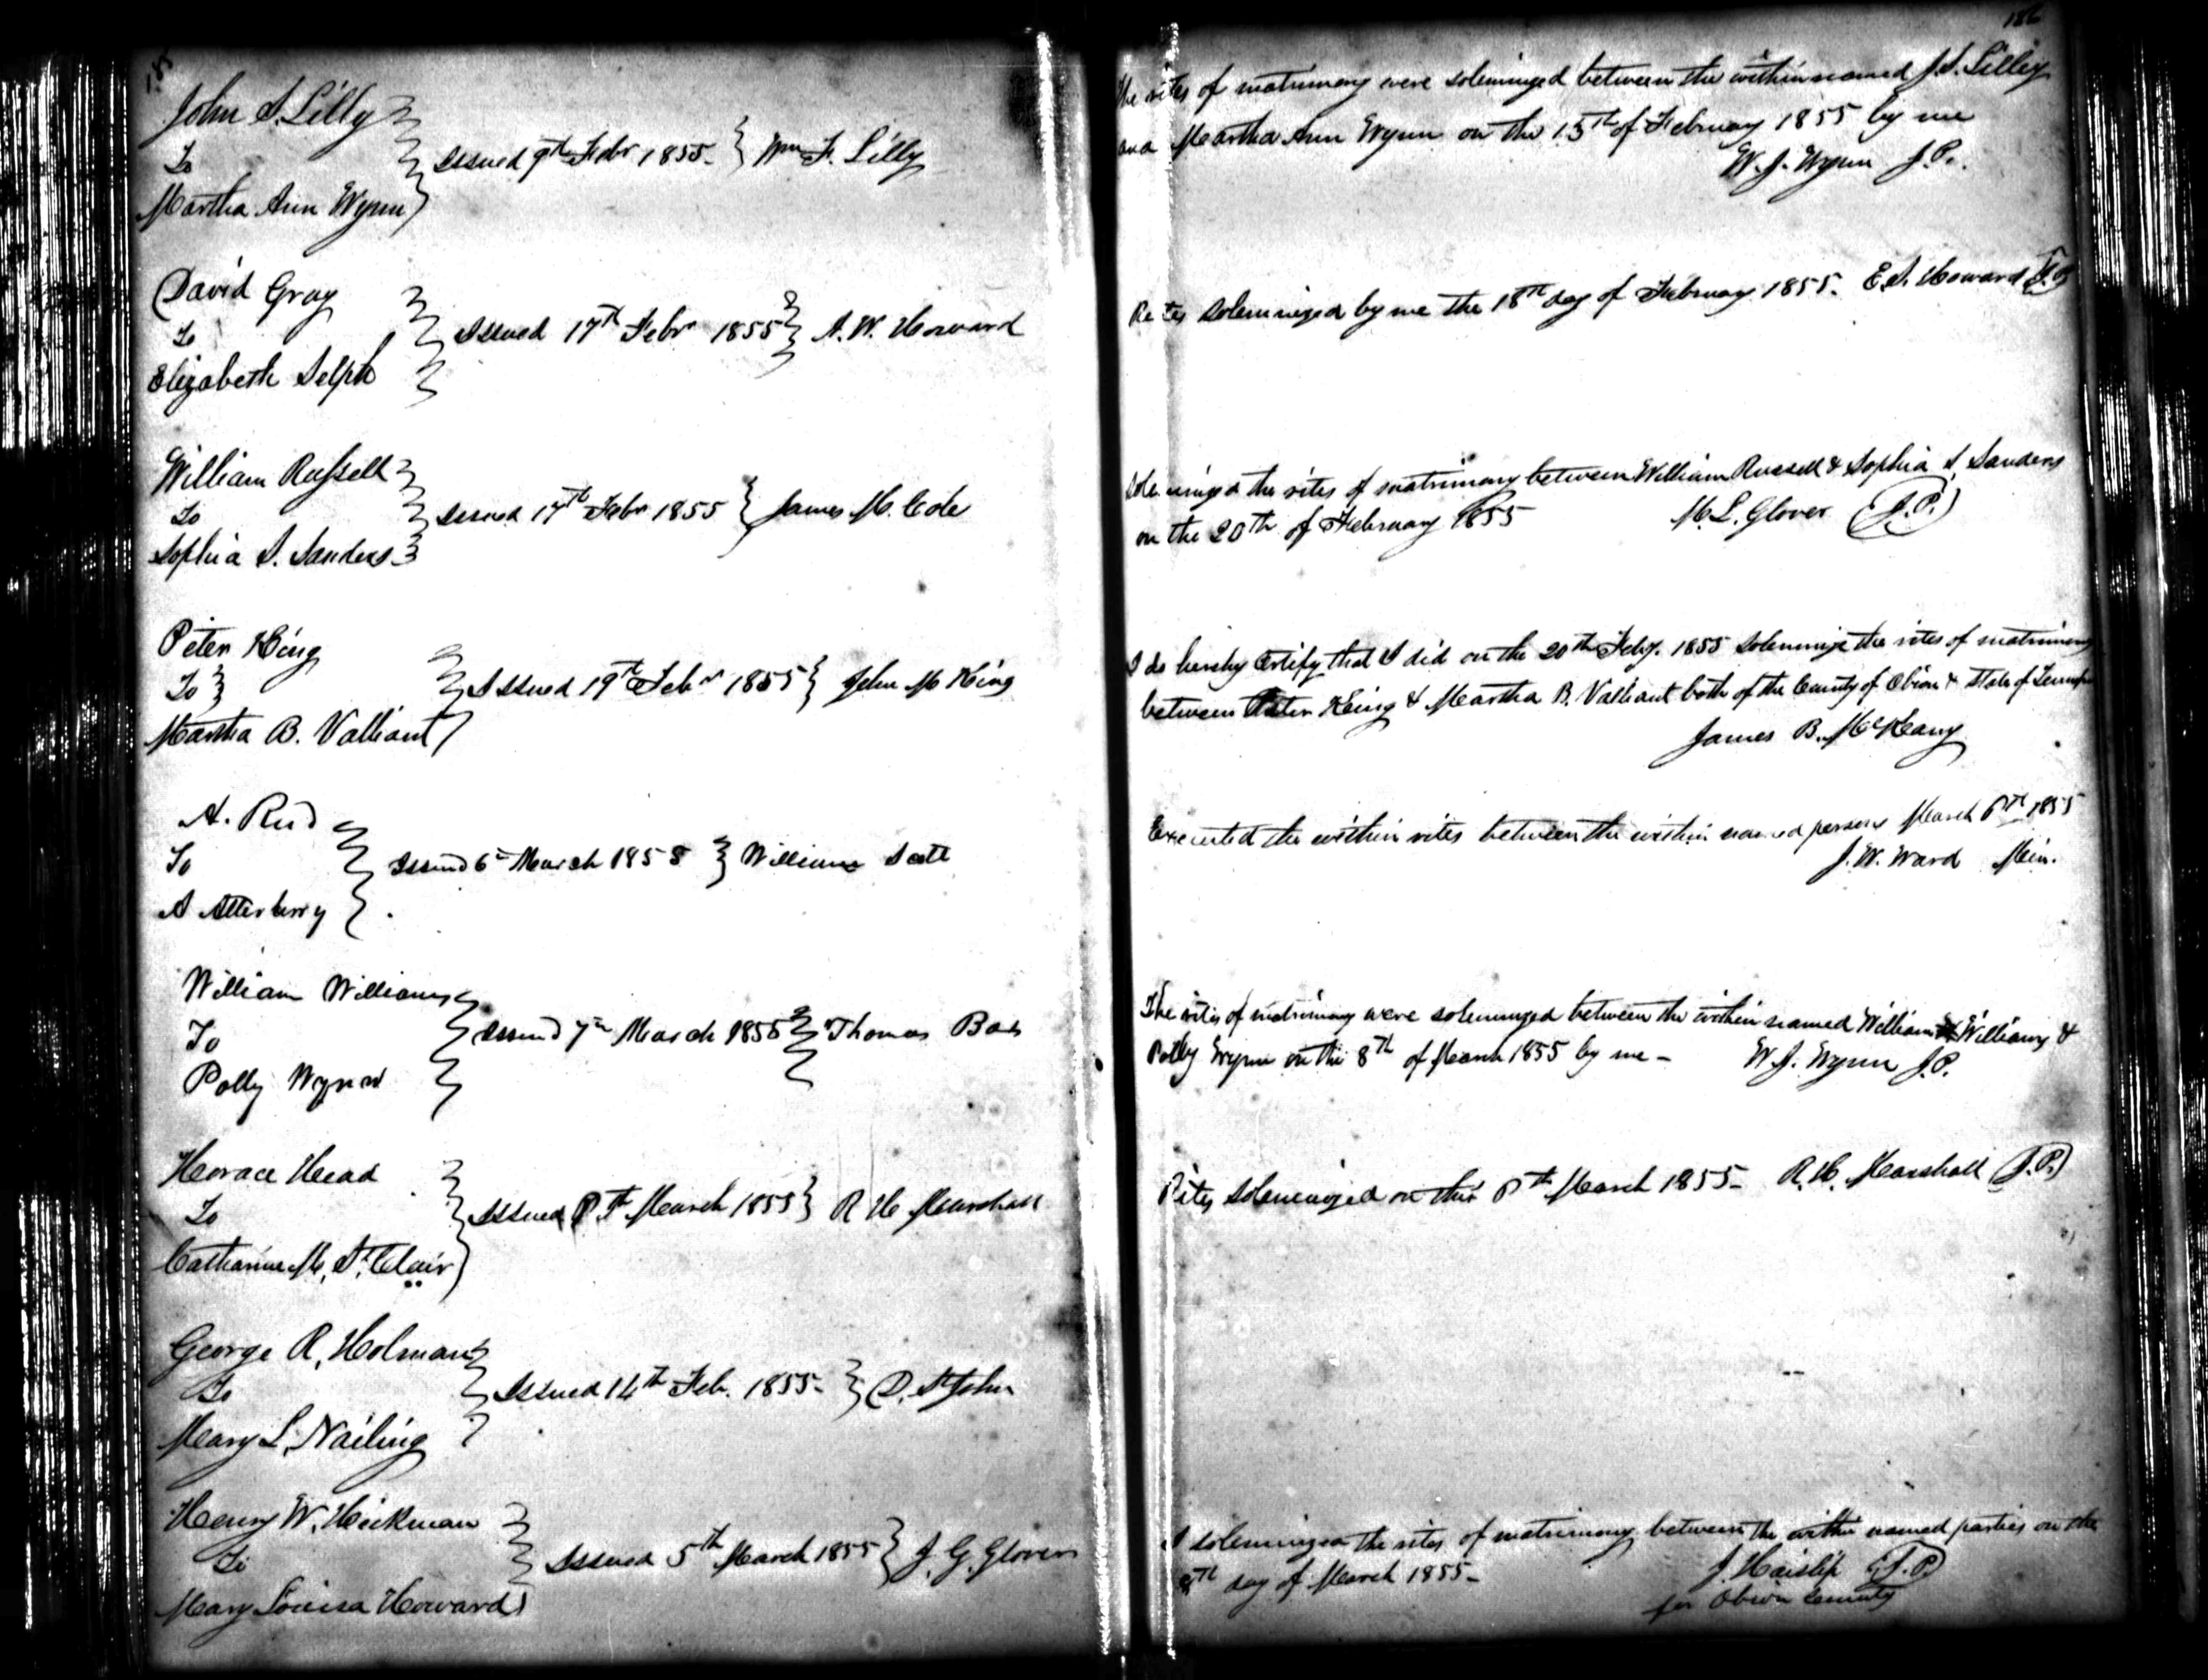 185
John S. Lilly
To
Martha Ann Wynn
Issued 9th Febr 1855. Wm F. Lilly
David Gray
To
Elizabeth Selph
Issued 17th Febr 1855 A. W. Howard
William Russell
To
Sophia S. Sanders
Issued 17th Febr 1855 James M. Cole
Peter King
To
Martha B. Valliant
Issued 19th Febr 1855 John M King
A. Reed
To
A Atterberry
Issued 6th March 1855 William Scott
William Williams
To
Polly Wynn
Issued 7th March 1855 Thomas
Horace Head
To
Catharine M. St. Clair
Issued 8th March 1855 R H Marshall
George R. Holman
To
Mary L. Nailing
Issued 14th Feb. 1855- D. St John
Henry W. Hickman
To
Mary Louisa Howard
Issued 5th March 1855 J. G. Glover
186
The rites of matrimony were solemnized between the within named J. S. Lilly
and Martha Ann Wynn on the 15th of February 1855 by me
W. J. Wynn J. P.
Rites solemnized by me the 18th day of February 1855. E. S. Howard
Solemnized the rites of matrimony between William Russell & Sophia S. Sanders
on the 20th of February 1855 M. L. Glover (J. P.)
I do hereby certify that I did on the 20th Feby. 1855 solemnize the rites of matrimony
between Peter King & Martha B. Valliant both of the County of Obion & State of
James B. McKamy
Executed the within rites between the within named persons March 6th 1855
J. W. Ward Min.
The rites of matrimony were solemnized between the within named William Williams &
Polly Wynn on the 8th of March 1855 by me - W. J. Wynn J. P.
Rites solemnized on this 8th March 1855- R. H. Marshall (J. P.)
I solemnized the rites of matrimony between the within named parties on the
8th day of March 1855- J. Haislip (J. P.)
for Obion County